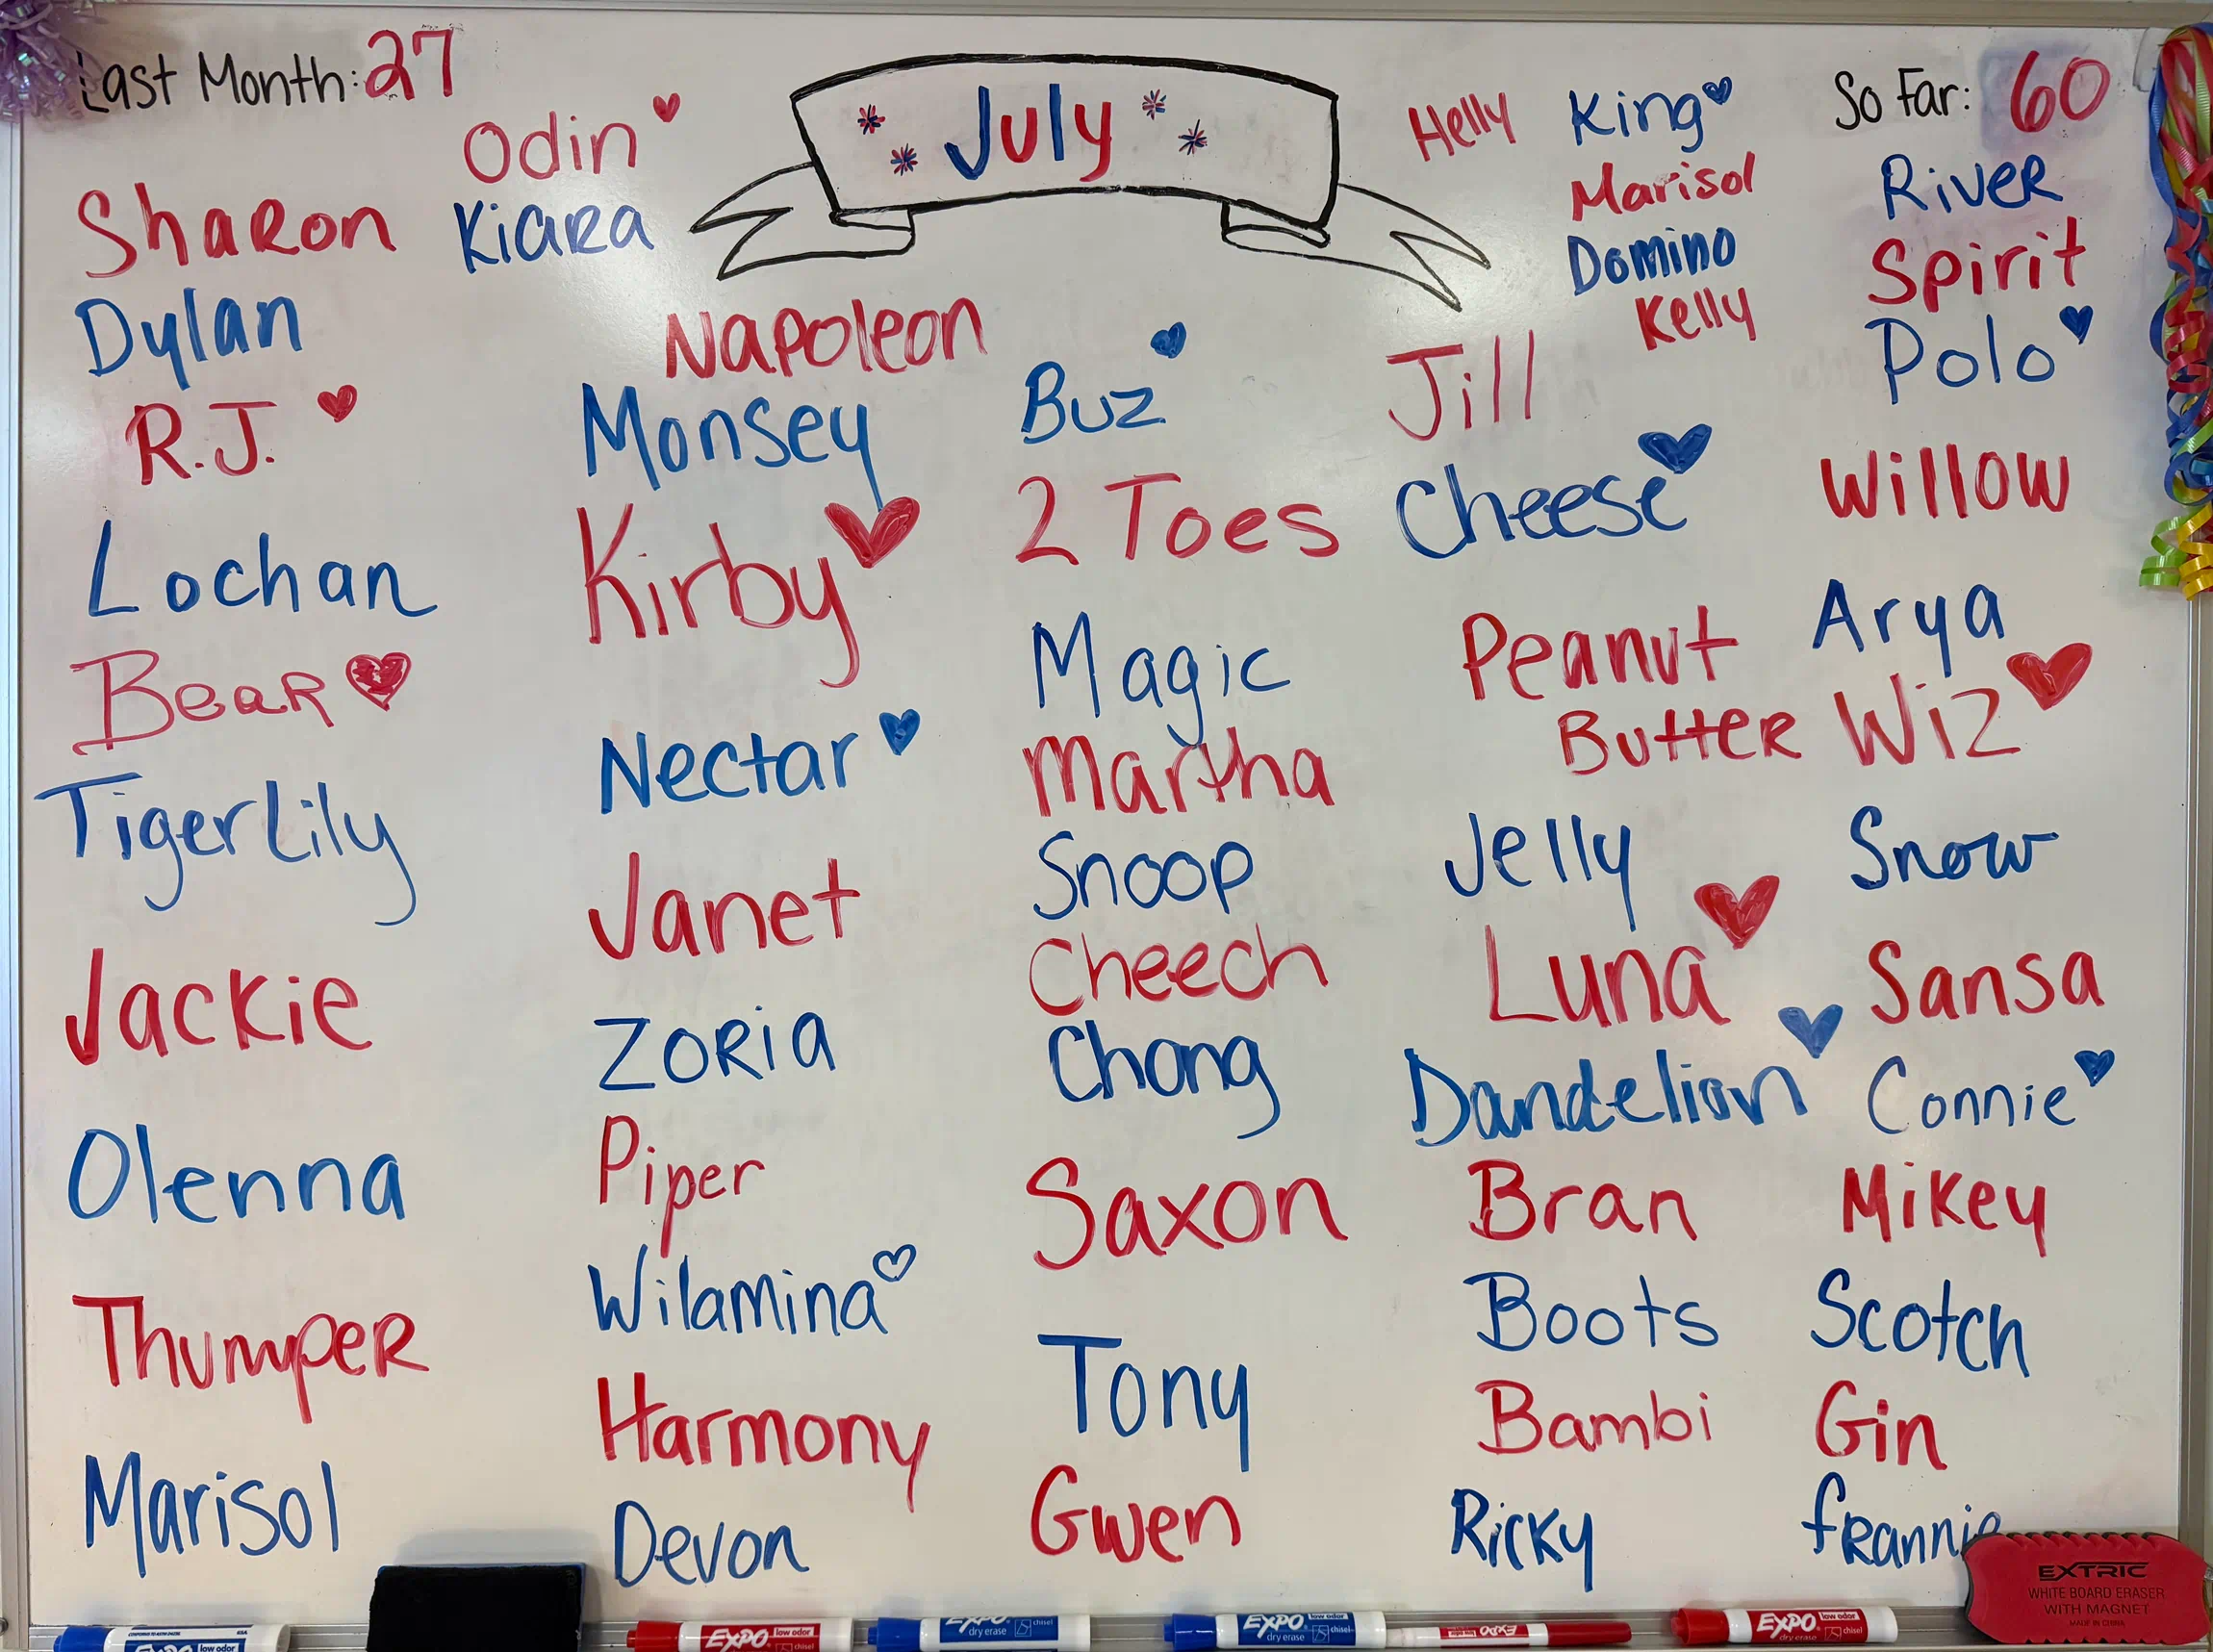 Last Month: 27
July
So Far: 60
Odin
Kiara
Sharon
Dylan
R.J.
Lochan
Bear
TigerLily
Jackie
Olenna
Thumper
Marisol
Napoleon
Monsey
Kirby
Nectar
Janet
Zoria
Piper
Wilamina
Harmony
Devon
Buz
2 Toes
Magic
Martha
Snoop
Cheech
Chong
Saxon
Tony
Gwen
Helly
King
Marisol
Domino
Kelly
Jill
Cheese
Peanut
Butter
Jelly
Luna
Dandelion
Bran
Boots
Bambi
Ricky
River
Spirit
Polo
Willow
Arya
Wiz
Snow
Sansa
Connie
Mikey
Scotch
Gin
frannie
EXTRIC
WHITE BOARD ERASER
WITH MAGNET
MADE IN CHINA
low odor
EXPO low odor
chisel
EXPO
dry erase chisel
EXPO low odor
dry erase chisel
EXPO
EXPO low odor
chisel